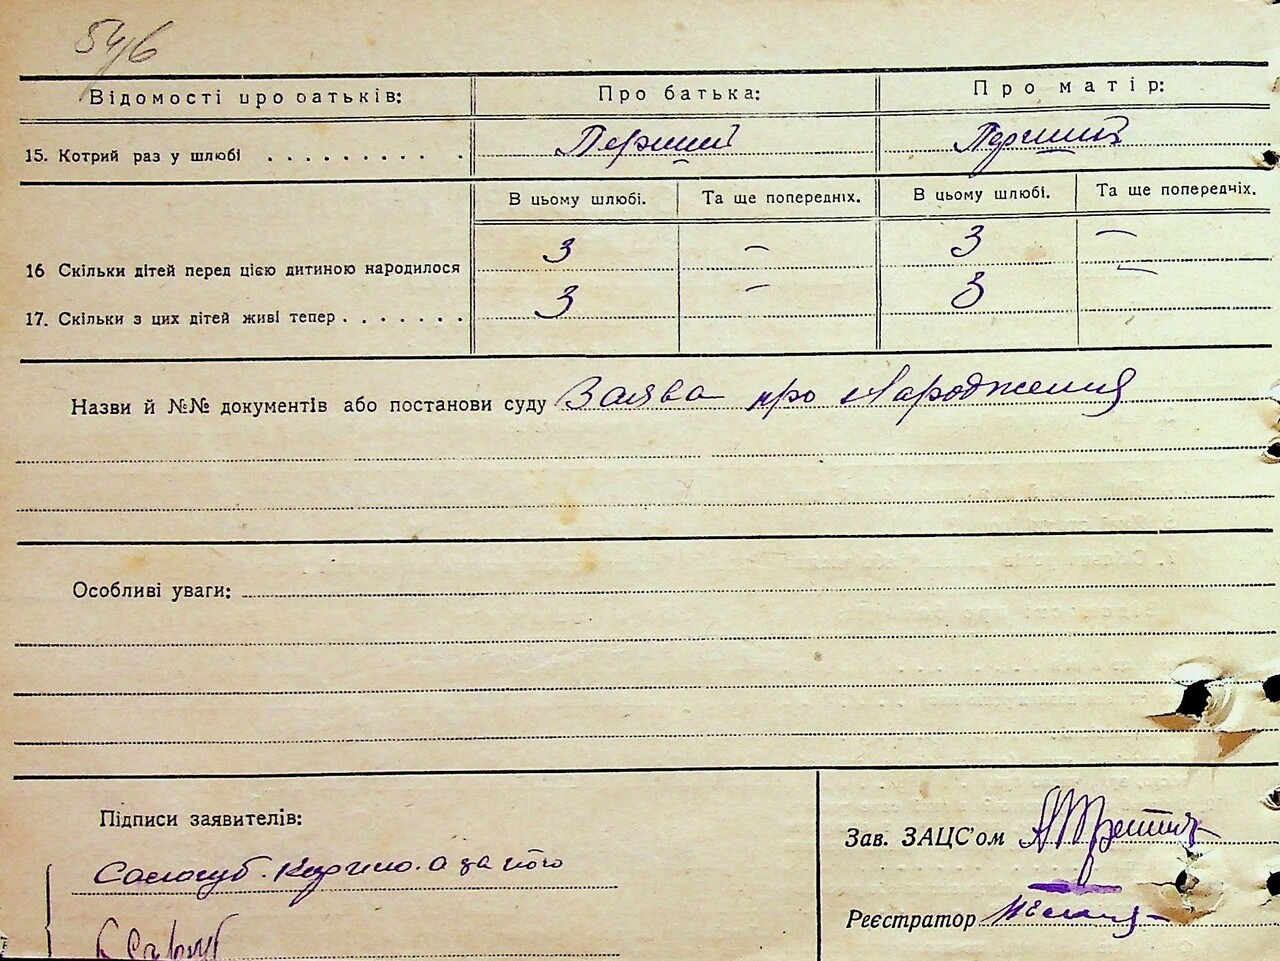 54/6
Відомості про батьків: Про батька: Про матір:
15. Котрий раз у шлюбі . . . . . . . . . . Перший Перший
В цьому шлюбі. Та ще попередніх. В цьому шлюбі. Та ще попередніх.
16 Скільки дітей перед цією дитиною народилося 3 – 3 –
17. Скільки з цих дітей живі тепер . . . . . . . 3 – 3 –
Назви й №№ документів або постанови суду Заява про народження
Особливі уваги:
Підписи заявителів:
Зав. ЗАЦС'ом
Сологуб. Кирило. а за його
Реєстратор